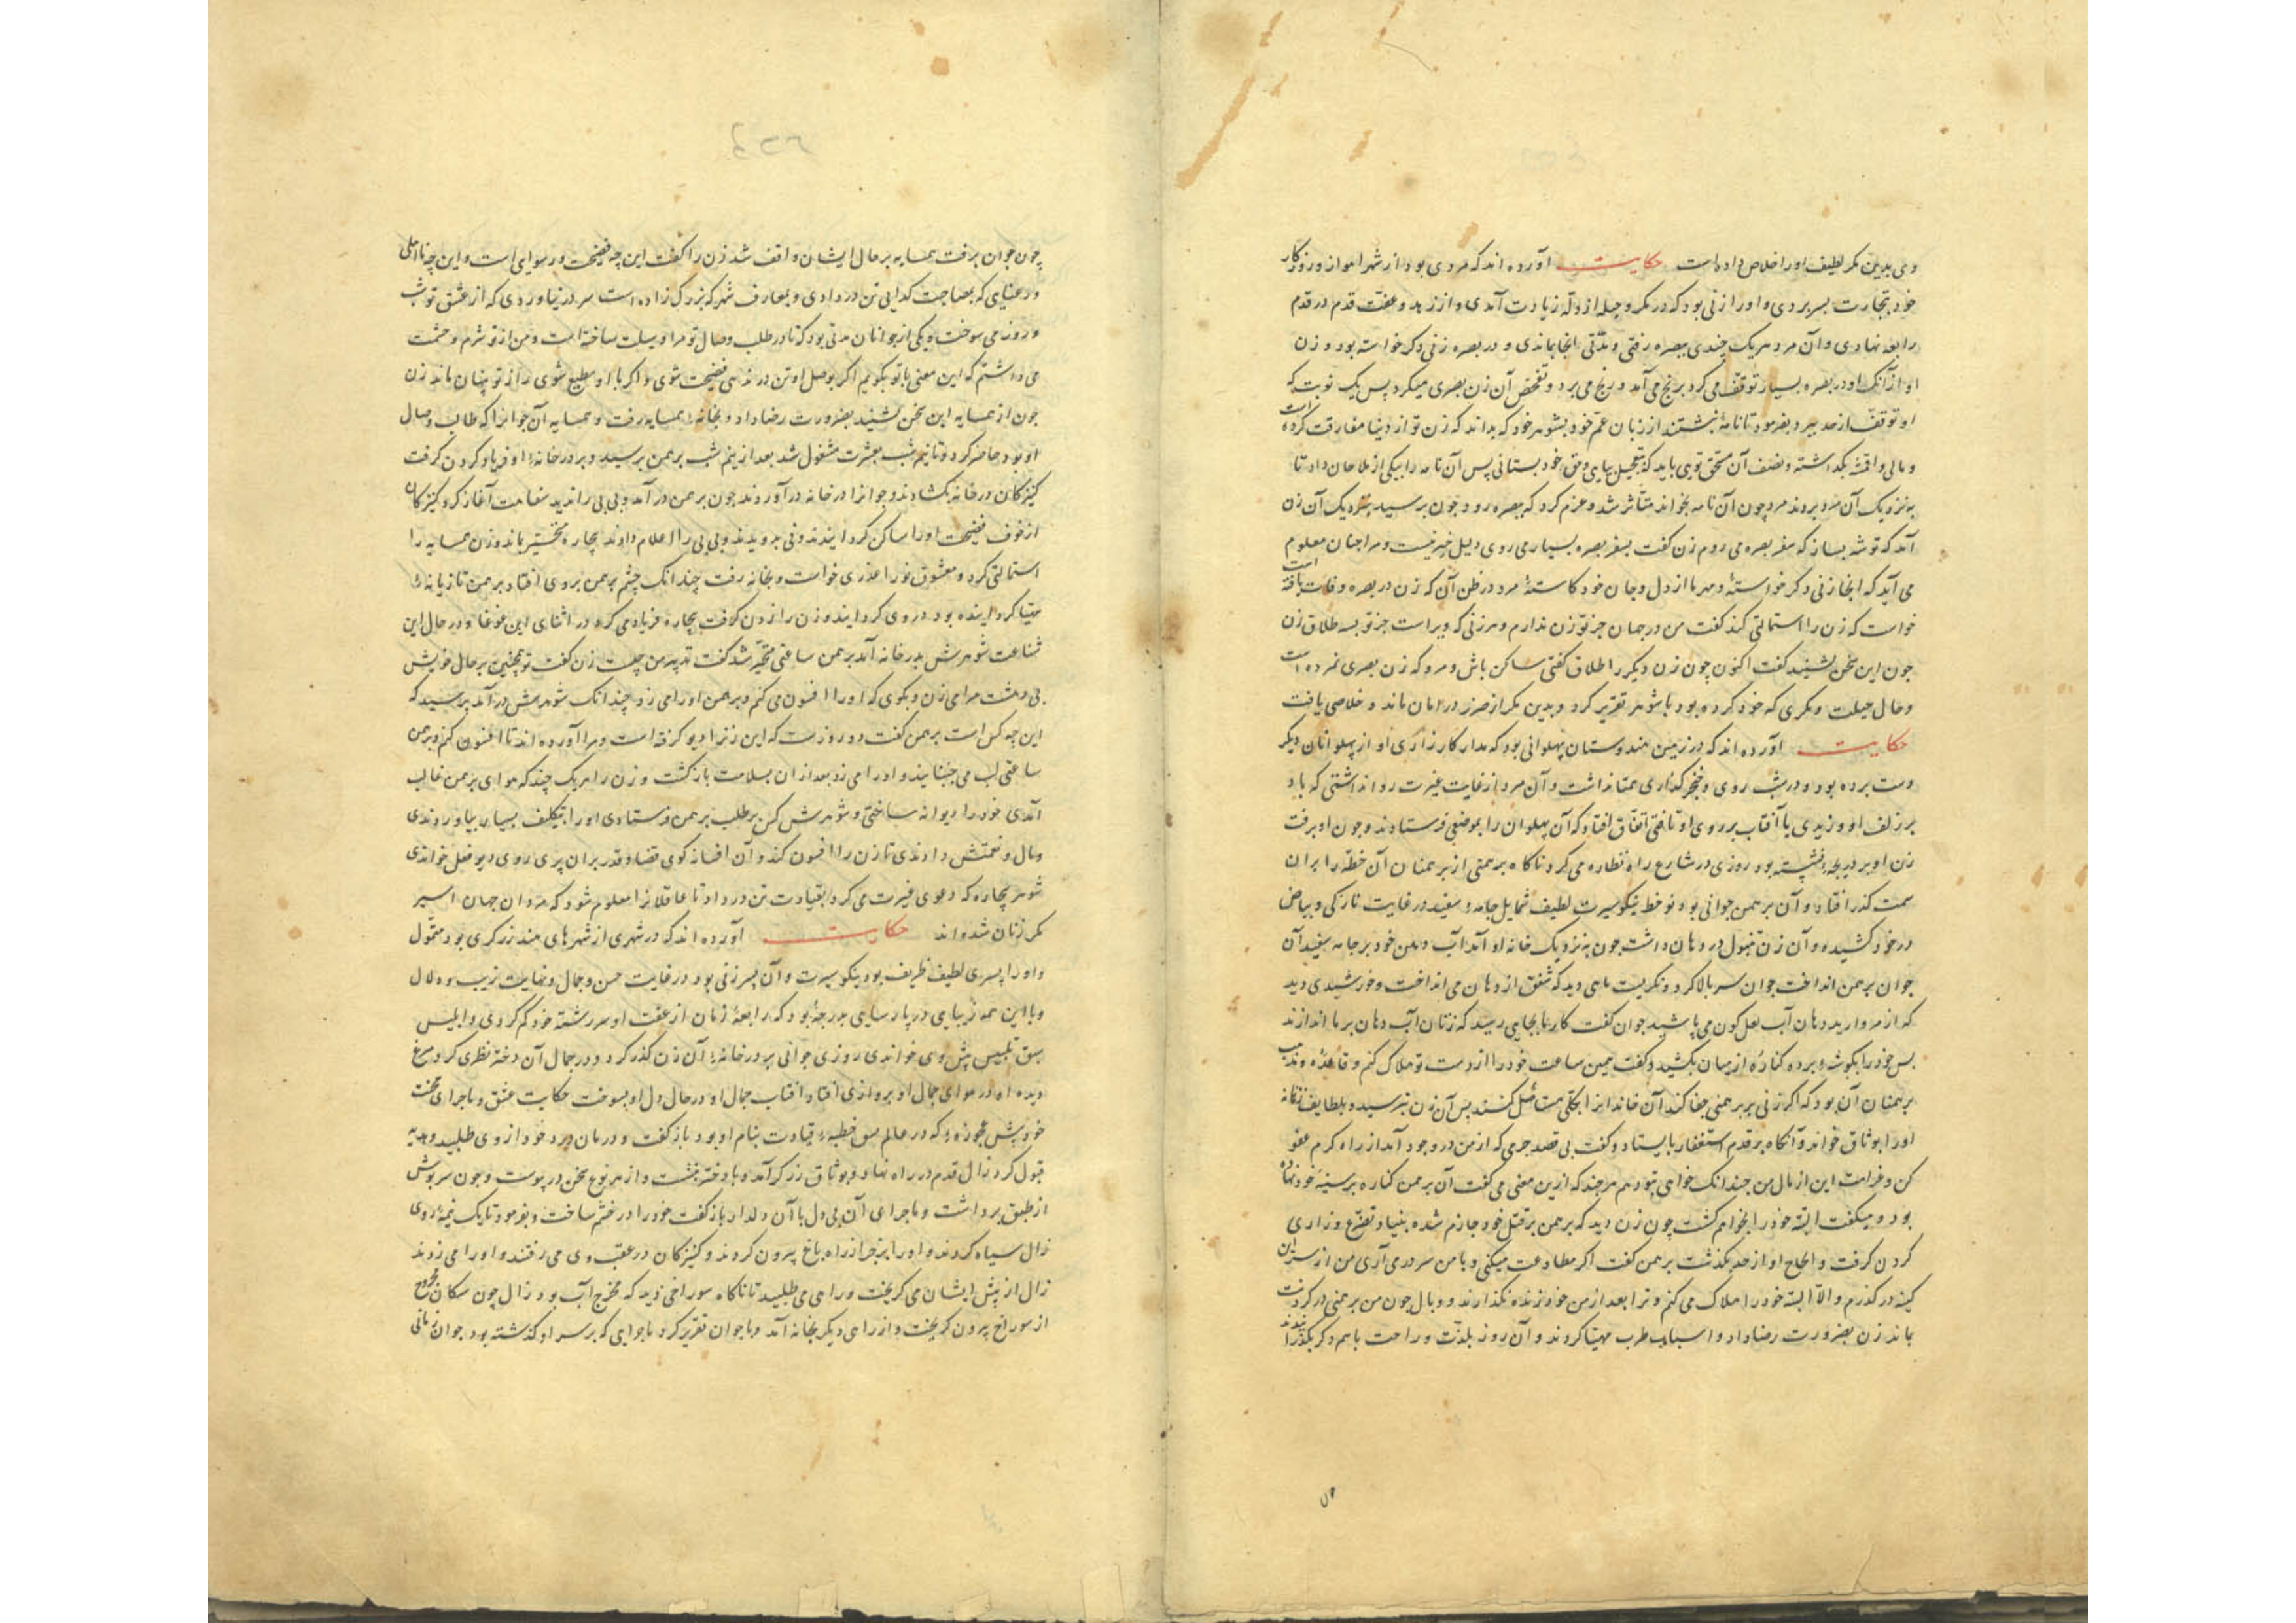 وی بدین مکر لطیف او را خلاص داده است حکایت آورده اند که مردی بود از شهر اهواز و روزکار
خود بتجارت بسر بردی و او را زنی بود که در مکر و حیله از دلّه زیادت آمدی و از زهد و عفت قدم در قدم
رابعه نهادی و آن مرد هر یک چندی ببصره رفتی و مدّتی آنجا بماندی و در بصره زنی دکر خواسته بود و زن
او از آنک او در بصره بسیار توقف می کرد برنج می آمد و رنج می برد و تفحص آن زن بصری میکرد پس یک نوبت که
او توقف از حد ببرد بفرمود تا نامهٔ نبشتند از زبان عم خود بشوهر خود که بداند که زن تو از دنیا مفارقت کرده است
و مالی و اقمشه بکذاشته و نصف آن مستحق تویی باید که بتعجیل بیایی و حق خود بستانی پس آن نامه را بیکی از ملاحان داد تا
به نزدیک آن مرد بردند مرد چون آن نامه بخواند متأثر شد و عزم کرد که ببصره رود چون برسید بنزدیک آن زن
آمد که توشه بساز که سفر بصره می روم زن کفت بسفر بصره بسیار می روی دلیل خیر نیست و مرا چنان معلوم
می آید که آنجا زنی دکر خواستهٔ و مهر ما از دل و جان خود کاستهٔ مرد در ظن آن که زن در بصره وفات یافته است
خواست که زن را استمالتی کند کفت من در جهان جز تو زن ندارم و هر زنی که ویراست جز تو بسه طلاق زن
چون این سخن بشنید کفت اکنون چون زن دیکر را طلاق کفتی ساکن باش و مرو که زن بصری نمرده است
و حال حیلت و مکری که خود کرده بود با شوهر تقریر کرد و بدین مکر از ضرر در امان ماند و خلاصی یافت
حکایت آورده اند که در زمین هندوستان پهلوانی بود که مدار کارزاری او از پهلوانان دیکر
دست برده بود و در شب روی و خنجر کذاری همتا نداشت و آن مرد از غایت غیرت روا نداشتی که باد
بر زلف او وزیدی یا آفتاب بر روی او تافتی اتفاق افتاد که آن پهلوان را بموضعی فرستادند و چون او برفت
زن او بر دریچه نشسته بود روزی در شارع راه نظاره می کرد ناکاه برهمنی از برهمنان آن خطّه را بران
سمت کذر افتاد و آن برهمن جوانی بود نو خط نیکو سیرت لطیف شمایل جامهٔ سفید در غایت نازکی و بیاض
در خود کشیده و آن زن تنبول در دهان داشت چون به نزدیک خانه او آمد آب دهن خود بر جامه سفید آن
جوان برهمن انداخت جوان سر بالا کرد و نکریست ماهی دید که شفق از دهان می انداخت و خورشیدی دید
که از مروارید دهان آب لعل کون می پاشید جوان کفت کار ما بجایی رسید که زنان آب دهان بر ما اندازند
پس خود را بکوشهٔ برد و کناره از میان بکشید و کفت همین ساعت خود را از دست تو هلاک کنم و قاعده و مذهب
برهمنان آن بود که اکر زنی بر برهمنی جفا کند آن خاندانرا بکلی مستأصل کنند پس آن زن بترسید و بلطایف زنانه
او را بوثاق خواند و آنکاه بر قدم استغفار بایستاد و کفت بی قصد جرمی که از من در وجود آمد از راه کرم عفو
کن و غرامت این از مال من چندانک خواهی بتو دهم هر چند که ازین معنی می کفت آن برهمن کناره بر سینهٔ خود نهاده
بود و میکفت البتّه خود را بخواهم کشت چون زن دید که برهمن بر قتل خود جازم شده بنیاد تضرّع و زاری
کردن کرفت و الحاح او از حد بکذشت برهمن کفت اکر مطاوعت میکنی و با من سر در می آری من از سر این
کینه در کذرم والّا البته خود را هلاک می کنم و ترا بعد از من خود زنده نکذارند و وبال خون من برهمنی در کردنت
بماند زن بضرورت رضا داد و اسباب طرب مهیّا کردند و آن روز بلذّت و راحت با هم دکر بکذرانیدند
چون جوان برفت همسایه بر حال ایشان واقف شد زن را کفت این چه فضیحت و رسوایی است و این چه نااهلی
و رعنایی که بمصاحبت کدایی تن در دادی و بمعارف شهر که بزرک زاده است سر در نیاوردی که از عشق تو شب
و روز می سوخت و یکی از جوانان مدتی بود که تا در طلب وصال تو مرا وسیلت ساخته است و من از تو شرم و حشمت
می داشتم که این معنی با تو بکویم اکر بوصل او تن در ندهی فضیحت شوی و اکر با او مطیع شوی راز تو پنهان ماند زن
چون از همسایه این سخن بشنید بضرورت رضا داد و بخانهٔ همسایه رفت و همسایه آن جوانرا که طالب وصال
او بود حاضر کرد و تا نیم شب بعشرت مشغول شد بعد از نیم شب برهمن برسید و بر در خانهٔ او فریاد کردن کرفت
کنیزکان در خانه بکشادند و جوانرا در خانه در آوردند چون برهمن در آمد و بی بی را ندید سفاهت آغاز کرد کنیزکان
از خوف فضیحت او را ساکن کردانیدند و بی بی را اعلام دادند بیچاره متحیّر بماند و زن همسایه را
استمالتی کرد و معشوق نو را عذری خواست و بخانه رفت چندانک چشم برهمن بروی افتاد برهمن تازیانهٔ
مهیّا کردانیده بود در وی کردانید و زن را زدن کرفت بیچاره فریاد می کرد در اثنای این غوغا و در حال این
شناعت شوهرش بدر خانه آمد برهمن ساعتی متحیّر شد کفت تدبیر من چیست زن کفت تو همچنین بر حال خویش
بی دهشت مرا می زن و بکوی که او را افسون می کنم و برهمن او را می زد چندانک شوهرش در آمد پرسید که
این چه کس است برهمن کفت دو روزست که این زنرا دیو کرفته است و مرا آورده اند تا افسون کنم و برهمن
ساعتی لب می جنبانید و او را می زد بعد از ان بسلامت باز کشت و زن را هر یک چند که هوای برهمن غالب
آمدی خود را دیوانه ساختی و شوهرش کس بر طلب برهمن فرستادی او را بتکلیف بسیار بیاوردندی
و مال و نعمتش دادندی تا زن را افسون کند و آن افسانه کوی قضا و قدر بران پری روی دیو فعل خواندی
شوهر بیچاره که دعوی غیرت می کرد بقیادت تن در داد تا عاقلانرا معلوم شود که مردان جهان اسیر
مکر زنان شده اند حکایت آورده اند که در شهری از شهرهای هند زرکری بود متموّل
و او را پسری لطیف ظریف بود نیکو سیرت و آن پسر زنی بود در غایت حسن و جمال و نهایت زیب و دلال
و با این همه زیبایی در پارسایی بدرجهٔ بود که رابعهٔ زمان از عفت او سر رشته خود کم کردی و ابلیس
سبق تلبیس پیش وی خواندی روزی جوانی بر در خانهٔ آن زن کذر کرد و در جمال آن دخته نظری کرد مرغ
دیده او در هوای جمال او پروازی افتاد آفتاب جمال او در حال دل او بسوخت حکایت عشق و ماجرای محنت
خود پیش عجوزهٔ که در عالم سق خطبهٔ قیادت بنام او بود باز کفت و درمان درد خود از وی طلبید و هدیه
قبول کرد زال قدم در راه نهاد و بوثاق زرکر آمد و با دختر بنشست و از هر نوع سخن در پیوست و چون سرپوش
از طبق برداشت و ماجرای آن بی دل با آن دلدار باز کفت خود را در خشم ساخت و بفرمود تا یک نیمهٔ روی
زال سیاه کردند و او را بزجر از راه باغ بیرون کردند و کنیزکان در عقب وی می رفتند و او را می زدند
زال از پیش ایشان می کریخت و راهی می طلبید تا ناکاه سوراخی دید که مخرج آب بود زال چون سکان مجروح
از سوراخ بیرون کریخت و از راهی دیکر بخانه آمد و با جوان تقریر کرد ماجرایی که بر سر او کذشته بود جوان زمانی